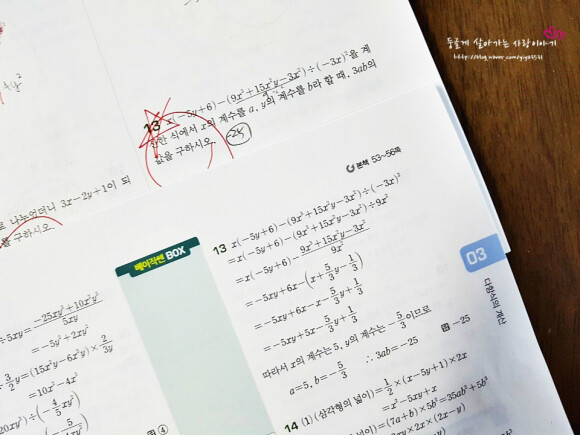 둥글게 살아가는 사랑이야기
13 x(-5y+6)-(9x³+15x²y-3x²)÷(-3x)²을 계
산한 식에서 x의 계수를 a, y의 계수를 b라 할 때, 3ab의
값을 구하시오.
나누었더니 3x-2y+1이 되
를 구하시오.
본책 53~56쪽
베이직쎈 BOX
13 x(-5y+6)-(9x³+15x²y-3x²)÷(-3x)²
=x(-5y+6)-(9x³+15x²y-3x²)÷9x²
=x(-5y+6)-\frac{9x³+15x²y-3x²}{9x²}
=-5xy+6x-(x+\frac{5}{3}y-\frac{1}{3})
=-5xy+6x-x-\frac{5}{3}y+\frac{1}{3}
=-5xy+5x-\frac{5}{3}y+\frac{1}{3}
따라서 x의 계수는 5, y의 계수는 -\frac{5}{3}이므로
a=5, b=-\frac{5}{3} ∴ 3ab=-25 답 -25
14 (1) (삼각형의 넓이)=\frac{1}{2}×(x-5y+1)×2x
=x²-5xy+x
=(7a+b)×5b²=35ab²+5b³
03
다항식의 계산
÷5xy=\frac{-25xy²+10x²y²}{5xy}
=-5y+2xy
\frac{3}{2}y=(15x²y-6x²y)×\frac{2}{3y}
=10x²-4x²
20xy)÷(-\frac{4}{5}xy)
답 ④